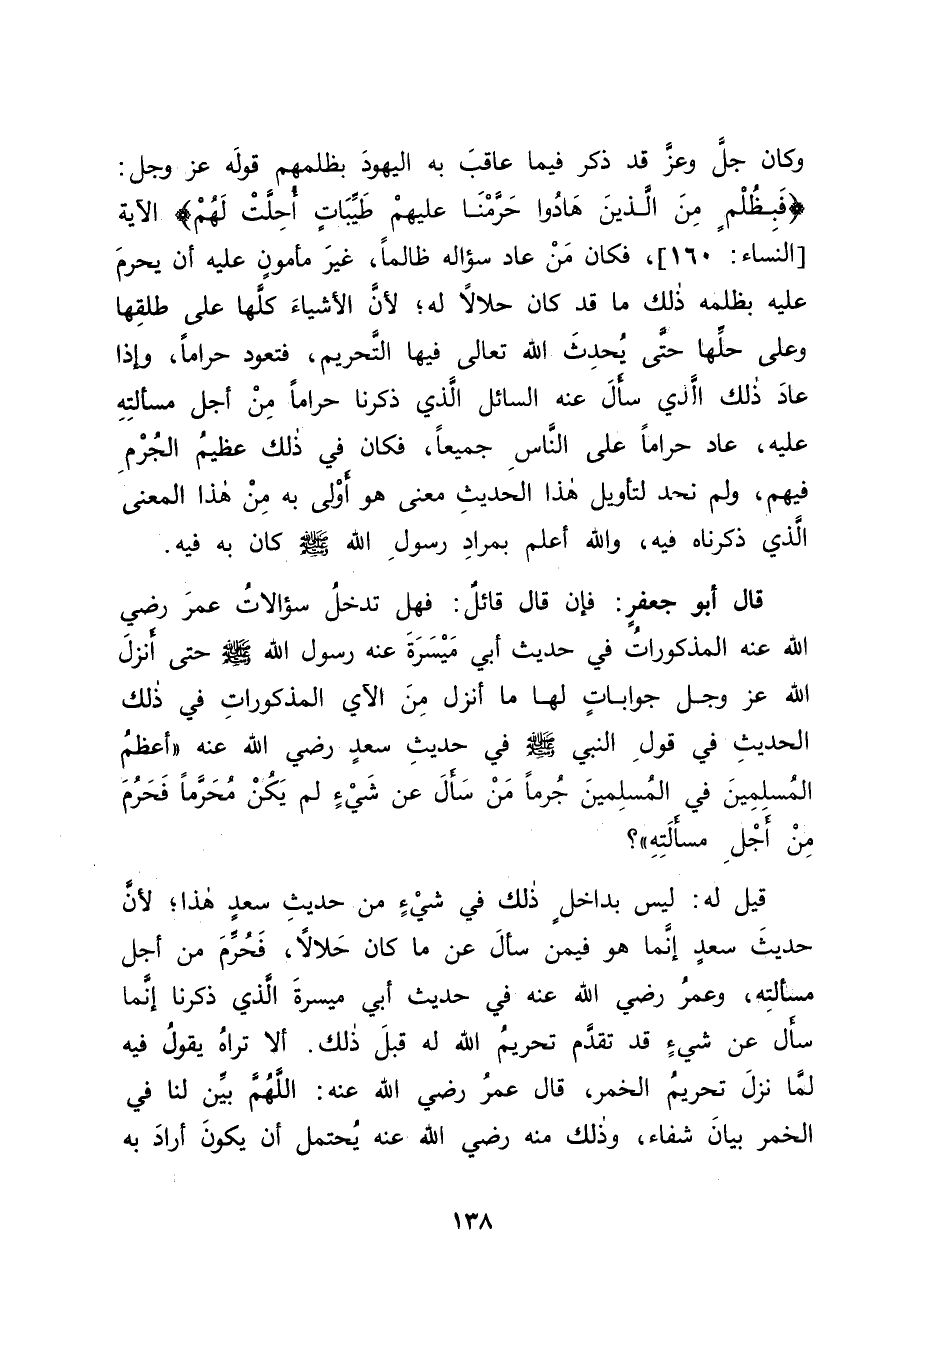 وكان جلَّ وعزَّ قد ذكر فيما عاقبَ به اليهودَ بظلمهم قولَه عز وجل:
﴿فَبِظُلْمٍ مِنَ الَّذينَ هَادُوا حَرَّمْنَا عليهمْ طَيِّبَاتٍ أُحِلَّتْ لَهُمْ﴾ الآية
[النساء: ١٦٠]، فكان مَنْ عاد سؤاله ظالماً، غيرَ مأمونٍ عليه أن يحرمَ
عليه بظلمه ذٰلك ما قد كان حلالًا له؛ لأنَّ الأشياءَ كلَّها على طلقِها
وعلى حلِّها حتَّى يُحدِثَ الله تعالى فيها التَّحريم، فتعود حراماً، وإذا
عادَ ذٰلك الَّذي سأَلَ عنه السائل الَّذي ذكرنا حراماً مِنْ أجل مسألتِهِ
عليه، عاد حراماً على النَّاسِ جميعاً، فكان في ذٰلك عظيمُ الجُرْمِ
فيهم، ولم نحد لتأويل هٰذا الحديثِ معنى هو أَوْلى به مِنْ هٰذا المعنى
الَّذي ذكرناه فيه، والله أعلم بمرادِ رسولِ الله ﷺ كان به فيه.
قال أبو جعفرٍ: فإن قال قائلٌ: فهل تدخلُ سؤالاتُ عمرَ رضي
الله عنه المذكوراتُ في حديث أبي مَيْسَرَةَ عنه رسول الله ﷺ حتى أَنزلَ
الله عز وجل جواباتٍ لها ما أنزل مِنَ الآي المذكوراتِ في ذٰلك
الحديثِ في قولِ النبي ﷺ في حديثِ سعدٍ رضي الله عنه «أعظمُ
المُسلِمِينَ في المُسلِمينَ جُرماً مَنْ سَأَلَ عن شَيْءٍ لم يَكُنْ مُحَرَّماً فَحَرُمَ
مِنْ أَجْلِ مسأَلَتِهِ»؟
قيل له: ليس بداخلٍ ذٰلك في شيْءٍ من حديثِ سعدٍ هٰذا؛ لأنَّ
حديثَ سعدٍ إنَّما هو فيمن سألَ عن ما كان حَلالًا، فَحُرِّمَ من أجل
مسألتِه، وعمرُ رضي الله عنه في حديث أبي ميسرةَ الَّذي ذكرنا إنَّما
سأَل عن شيءٍ قد تقدَّم تحريمُ الله له قبلَ ذٰلك. ألا تراهُ يقولُ فيه
لمَّا نزلَ تحريمُ الخمر، قال عمرُ رضي الله عنه: اللَّهُمَّ بيِّن لنا في
الخمر بيانَ شفاء، وذٰلك منه رضي الله عنه يُحتمل أن يكونَ أرادَ به
١٣٨